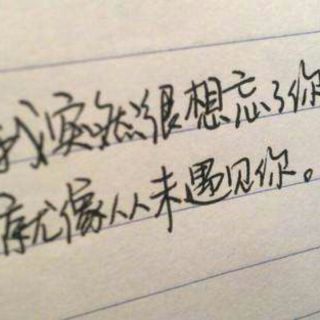 我突然很想忘了你
就像从未遇见你。